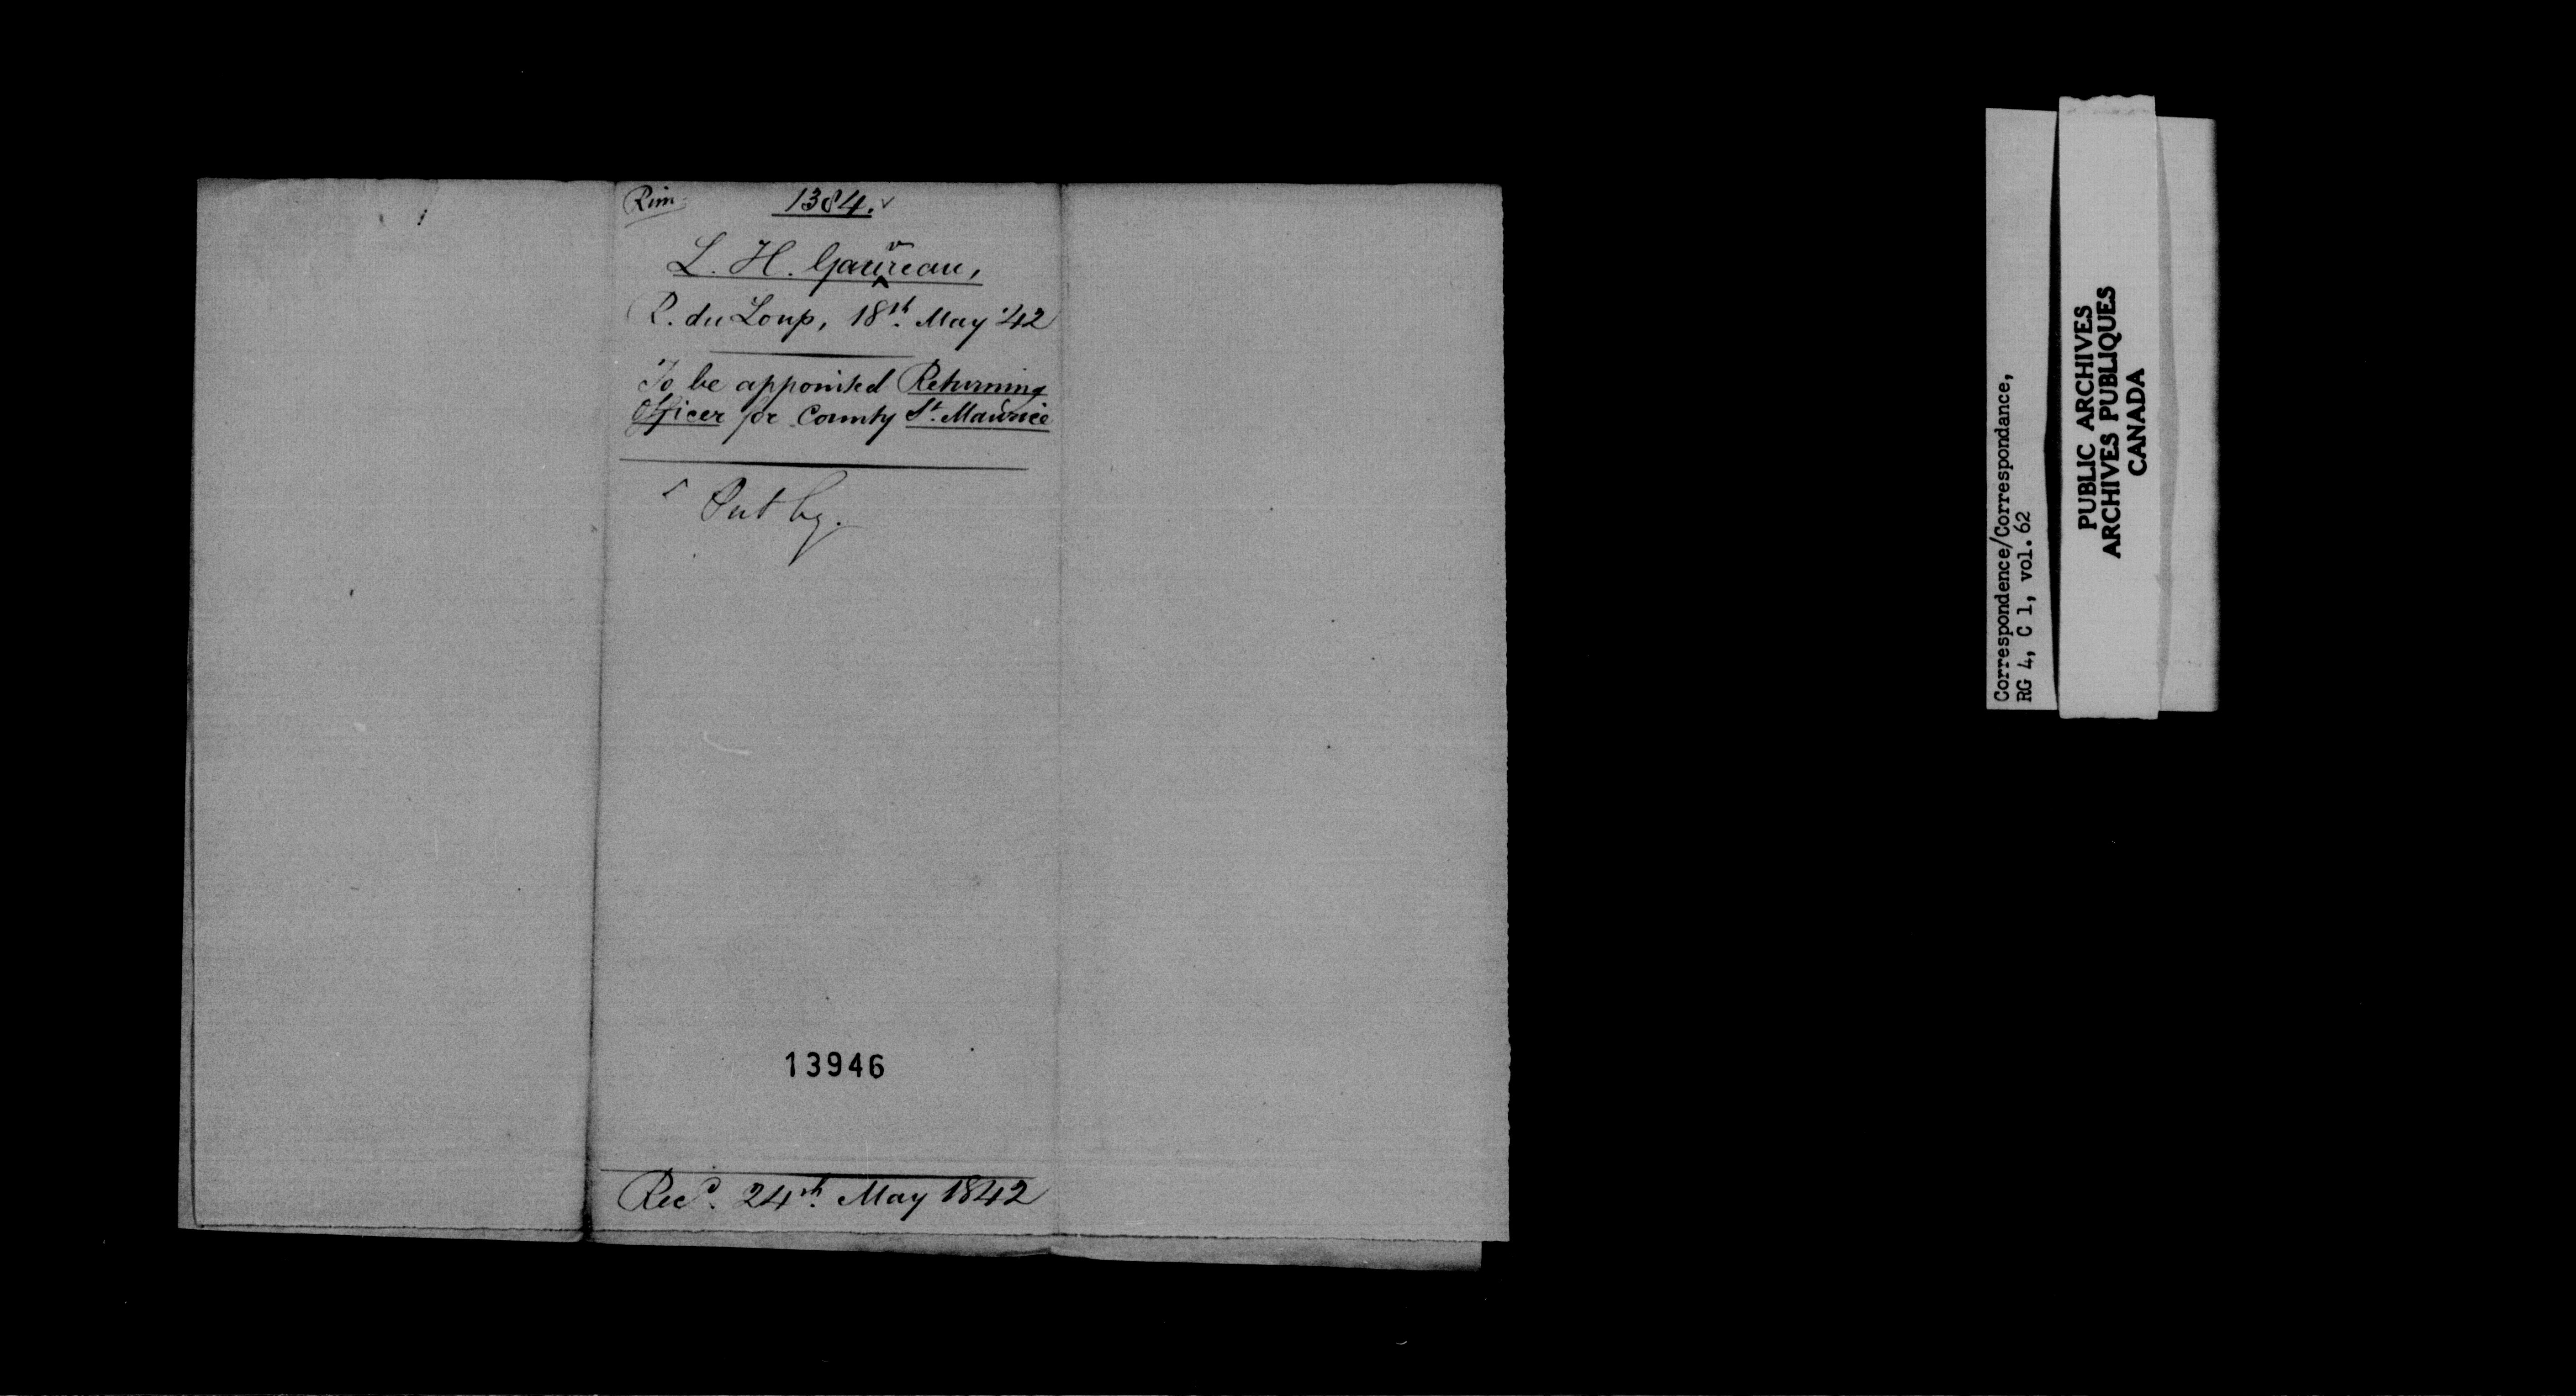 Rim
1384.
L. H. Gauvreau,
R. du Loup, 18th. May '42
To be appointed Returning
Officer for County St. Maurice
Put by.
13946
Recd. 24th. May 1842
Correspondence/Correspondance,
RG 4, C 1, vol. 62
PUBLIC ARCHIVES
ARCHIVES PUBLIQUES
CANADA